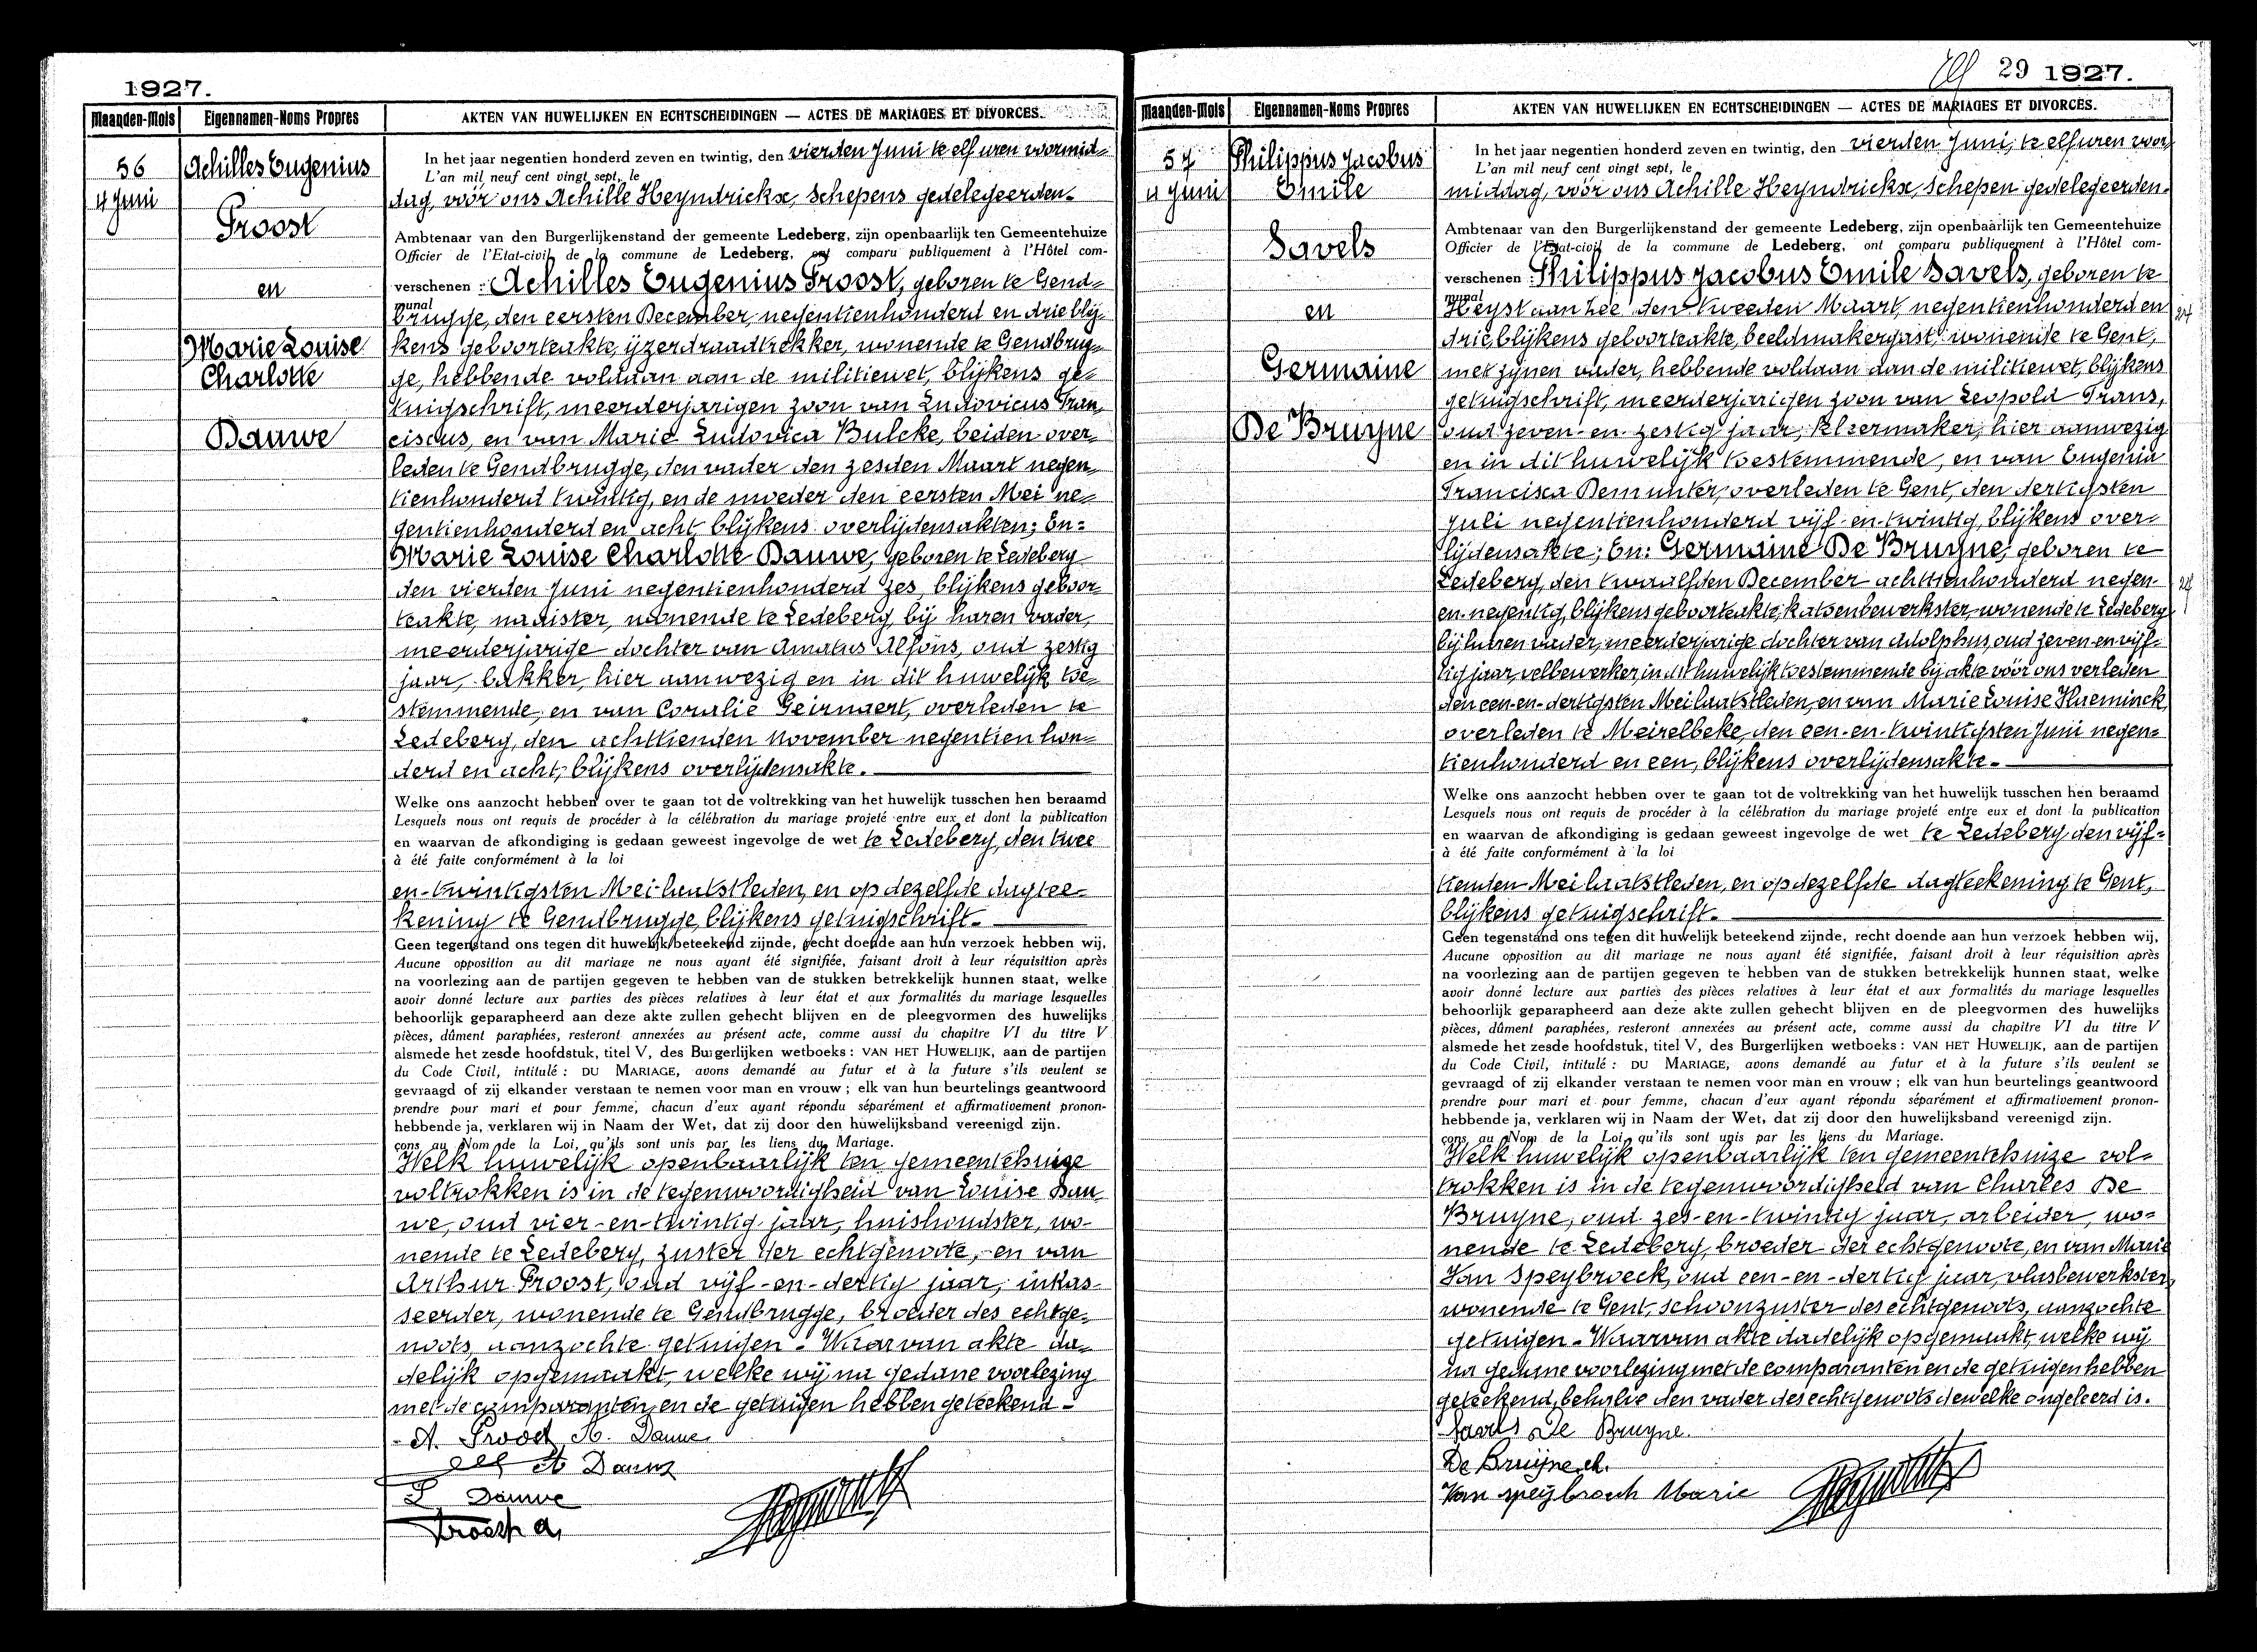 1927.
Maanden-Mois Eigennamen-Noms Propres AKTEN VAN HUWELIJKEN EN ECHTSCHEIDINGEN — ACTES DE MARIAGES ET DIVORCES.
56
4 Juni
Achilles Eugenius
Proost
en
Marie Louise
Charlotte
Dauwe
In het jaar negentien honderd zeven en twintig, den vierden Juni te elf uren voormid-
L'an mil neuf cent vingt sept, le
dag, vóór ons Achille Heyndrickx, Schepens gedelegeerden-
Ambtenaar van den Burgerlijkenstand der gemeente Ledeberg, zijn openbaarlijk ten Gemeentehuize
Officier de l'Etat-civil de la commune de Ledeberg, ont comparu publiquement à l'Hôtel com-
verschenen : Achilles Eugenius Proost, geboren te Gend-
munal
brugge, den eersten December, negentienhonderd en drie blij-
kens geboorteakte, ijzerdraadtrekker, wonende te Gendbrug-
ge, hebbende voldaan aan de militiewet, blijkens ge-
tuigschrift, meerderjarigen zoon van Ludovicus Fran-
ciscus, en van Marie Ludovica Bulcke, beiden over-
leden te Gendbrugge, den vader den zesden Maart negen-
tienhonderd twintig, en de moeder den eersten Mei ne-
gentienhonderd en acht blijkens overlijdensakten; En:
Marie Louise Charlotte Dauwe, geboren te Ledeberg
den vierden Juni negentienhonderd zes, blijkens geboor-
teakte, naaister, wonende te Ledeberg, bij haren vader,
meerderjarige dochter van Amatus Alfons, oud zestig
jaar, bakker, hier aanwezig en in dit huwelijk toe-
stemmende, en van Coralie Geirnaert, overleden te
Ledeberg, den achttienden November negentienhon-
derd en acht, blijkens overlijdensakte.
Welke ons aanzocht hebben over te gaan tot de voltrekking van het huwelijk tusschen hen beraamd
Lesquels nous ont requis de procéder à la célébration du mariage projeté entre eux et dont la publication
en waarvan de afkondiging is gedaan geweest ingevolge de wet te Ledeberg, den twee
à été faite conformément à la loi
en-twintigsten Mei laatstleden, en op dezelfde dagtee-
kening te Gendbrugge, blijkens getuigschrift.
Geen tegenstand ons tegen dit huwelijk beteekend zijnde, recht doende aan hun verzoek hebben wij,
Aucune opposition au dit mariage ne nous ayant été signifiée, faisant droit à leur réquisition après
na voorlezing aan de partijen gegeven te hebben van de stukken betrekkelijk hunnen staat, welke
avoir donné lecture aux parties des pièces relatives à leur état et aux formalités du mariage lesquelles
behoorlijk geparapheerd aan deze akte zullen gehecht blijven en de pleegvormen des huwelijks
pièces, dûment paraphées, resteront annexées au présent acte, comme aussi du chapitre VI du titre V
alsmede het zesde hoofdstuk, titel V, des Burgerlijken wetboeks : VAN HET HUWELIJK, aan de partijen
du Code Civil, intitulé : DU MARIAGE, avons demandé au futur et à la future s'ils veulent se
gevraagd of zij elkander verstaan te nemen voor man en vrouw ; elk van hun beurtelings geantwoord
prendre pour mari et pour femme, chacun d'eux ayant répondu séparément et affirmativement pronon-
hebbende ja, verklaren wij in Naam der Wet, dat zij door den huwelijksband vereenigd zijn.
çons au Nom de la Loi, qu'ils sont unis par les liens du Mariage.
Welk huwelijk openbaarlijk ten gemeentehuize
voltrokken is in de tegenwoordigheid van Louise Dau-
we, oud vier-en-twintig jaar, huishoudster, wo-
nende te Ledeberg, zuster der echtgenoote, en van
Arthur Proost, oud vijf-en-dertig jaar, inkas-
seerder, wonende te Gendbrugge, broeder des echtge-
noots, aanzochte getuigen - Waarvan akte da-
delijk opgemaakt, welke wij na gedane voorlezing
met de comparanten en de getuigen hebben geteekend -
A. Proost M. Dauwe
A Dauwe
L Dauwe
Proost A.
29 1927.
Maanden-Mois Eigennamen-Noms Propres AKTEN VAN HUWELIJKEN EN ECHTSCHEIDINGEN — ACTES DE MARIAGES ET DIVORCES.
57
4 Juni
Philippus Jacobus
Emile
Savels
en
Germaine
De Bruyne
In het jaar negentien honderd zeven en twintig, den vierden Juni, te elf uren voor
L'an mil neuf cent vingt sept, le
middag, vóór ons Achille Heyndrickx, Schepen gedelegeerden-
Ambtenaar van den Burgerlijkenstand der gemeente Ledeberg, zijn openbaarlijk ten Gemeentehuize
Officier de l'Etat-civil de la commune de Ledeberg, ont comparu publiquement à l'Hôtel com-
verschenen : Philippus Jacobus Emile Savels, geboren te
munal
Heyst aan Zee den tweeden Maart, negentienhonderd en
drie, blijkens geboorteakte, beeldmakergast, wonende te Gent,
met zijnen vader, hebbende voldaan aan de militiewet, blijkens
getuigschrift, meerderjarigen zoon van Leopold Frans,
oud zeven-en-zestig jaar, kleermaker, hier aanwezig
en in dit huwelijk toestemmende, en van Eugenia
Francisca Demunter, overleden te Gent, den dertigsten
Juli negentienhonderd vijf-en-twintig, blijkens over-
lijdensakte; En: Germaine De Bruyne, geboren te
Ledeberg, den twaalfden December achttienhonderd negen-
en-negentig, blijkens geboorteakte, katoenbewerkster, wonende te Ledeberg
bij haren vader, meerderjarige dochter van Adolphus, oud zeven-en-vijf-
tig jaar, velbewerker, in dit huwelijk toestemmende bij akte vóór ons verleden
den een-en-dertigsten Mei laatstleden, en van Marie Louise Haeminck,
overleden te Meirelbeke, den een-en-twintigsten Juni negen-
tienhonderd en een, blijkens overlijdensakte-
Welke ons aanzocht hebben over te gaan tot de voltrekking van het huwelijk tusschen hen beraamd
Lesquels nous ont requis de procéder à la célébration du mariage projeté entre eux et dont la publication
en waarvan de afkondiging is gedaan geweest ingevolge de wet te Ledeberg den vijf-
à été faite conformément à la loi
tienden Mei laatstleden, en op dezelfde dagteekening te Gent,
blijkens getuigschrift.
Geen tegenstand ons tegen dit huwelijk beteekend zijnde, recht doende aan hun verzoek hebben wij,
Aucune opposition au dit mariage ne nous ayant été signifiée, faisant droit à leur réquisition après
na voorlezing aan de partijen gegeven te hebben van de stukken betrekkelijk hunnen staat, welke
avoir donné lecture aux parties des pièces relatives à leur état et aux formalités du mariage lesquelles
behoorlijk geparapheerd aan deze akte zullen gehecht blijven en de pleegvormen des huwelijks
pièces, dûment paraphées, resteront annexées au présent acte, comme aussi du chapitre VI du titre V
alsmede het zesde hoofdstuk, titel V, des Burgerlijken wetboeks : VAN HET HUWELIJK, aan de partijen
du Code Civil, intitulé : DU MARIAGE, avons demandé au futur et à la future s'ils veulent se
gevraagd of zij elkander verstaan te nemen voor man en vrouw ; elk van hun beurtelings geantwoord
prendre pour mari et pour femme, chacun d'eux ayant répondu séparément et affirmativement pronon-
hebbende ja, verklaren wij in Naam der Wet, dat zij door den huwelijksband vereenigd zijn.
çons au Nom de la Loi, qu'ils sont unis par les liens du Mariage.
Welk huwelijk openbaarlijk ten gemeentehuize vol-
trokken is in de tegenwoordigheid van Charles De
Bruyne, oud zes-en-twintig jaar, arbeider, wo-
nende te Ledeberg, broeder der echtgenoote, en van Marie
Van Speybroeck, oud een-en-dertig jaar, vlasbewerkster,
wonende te Gent, schoonzuster des echtgenoots, aanzochte
getuigen - Waarvan akte dadelijk opgemaakt, welke wij
na gedane voorlezing met de comparanten en de getuigen hebben
geteekend, behalve den vader des echtgenoots dewelke ongeleerd is.
De Bruyne.
De Bruyne ch.
Van speybroeck Marie